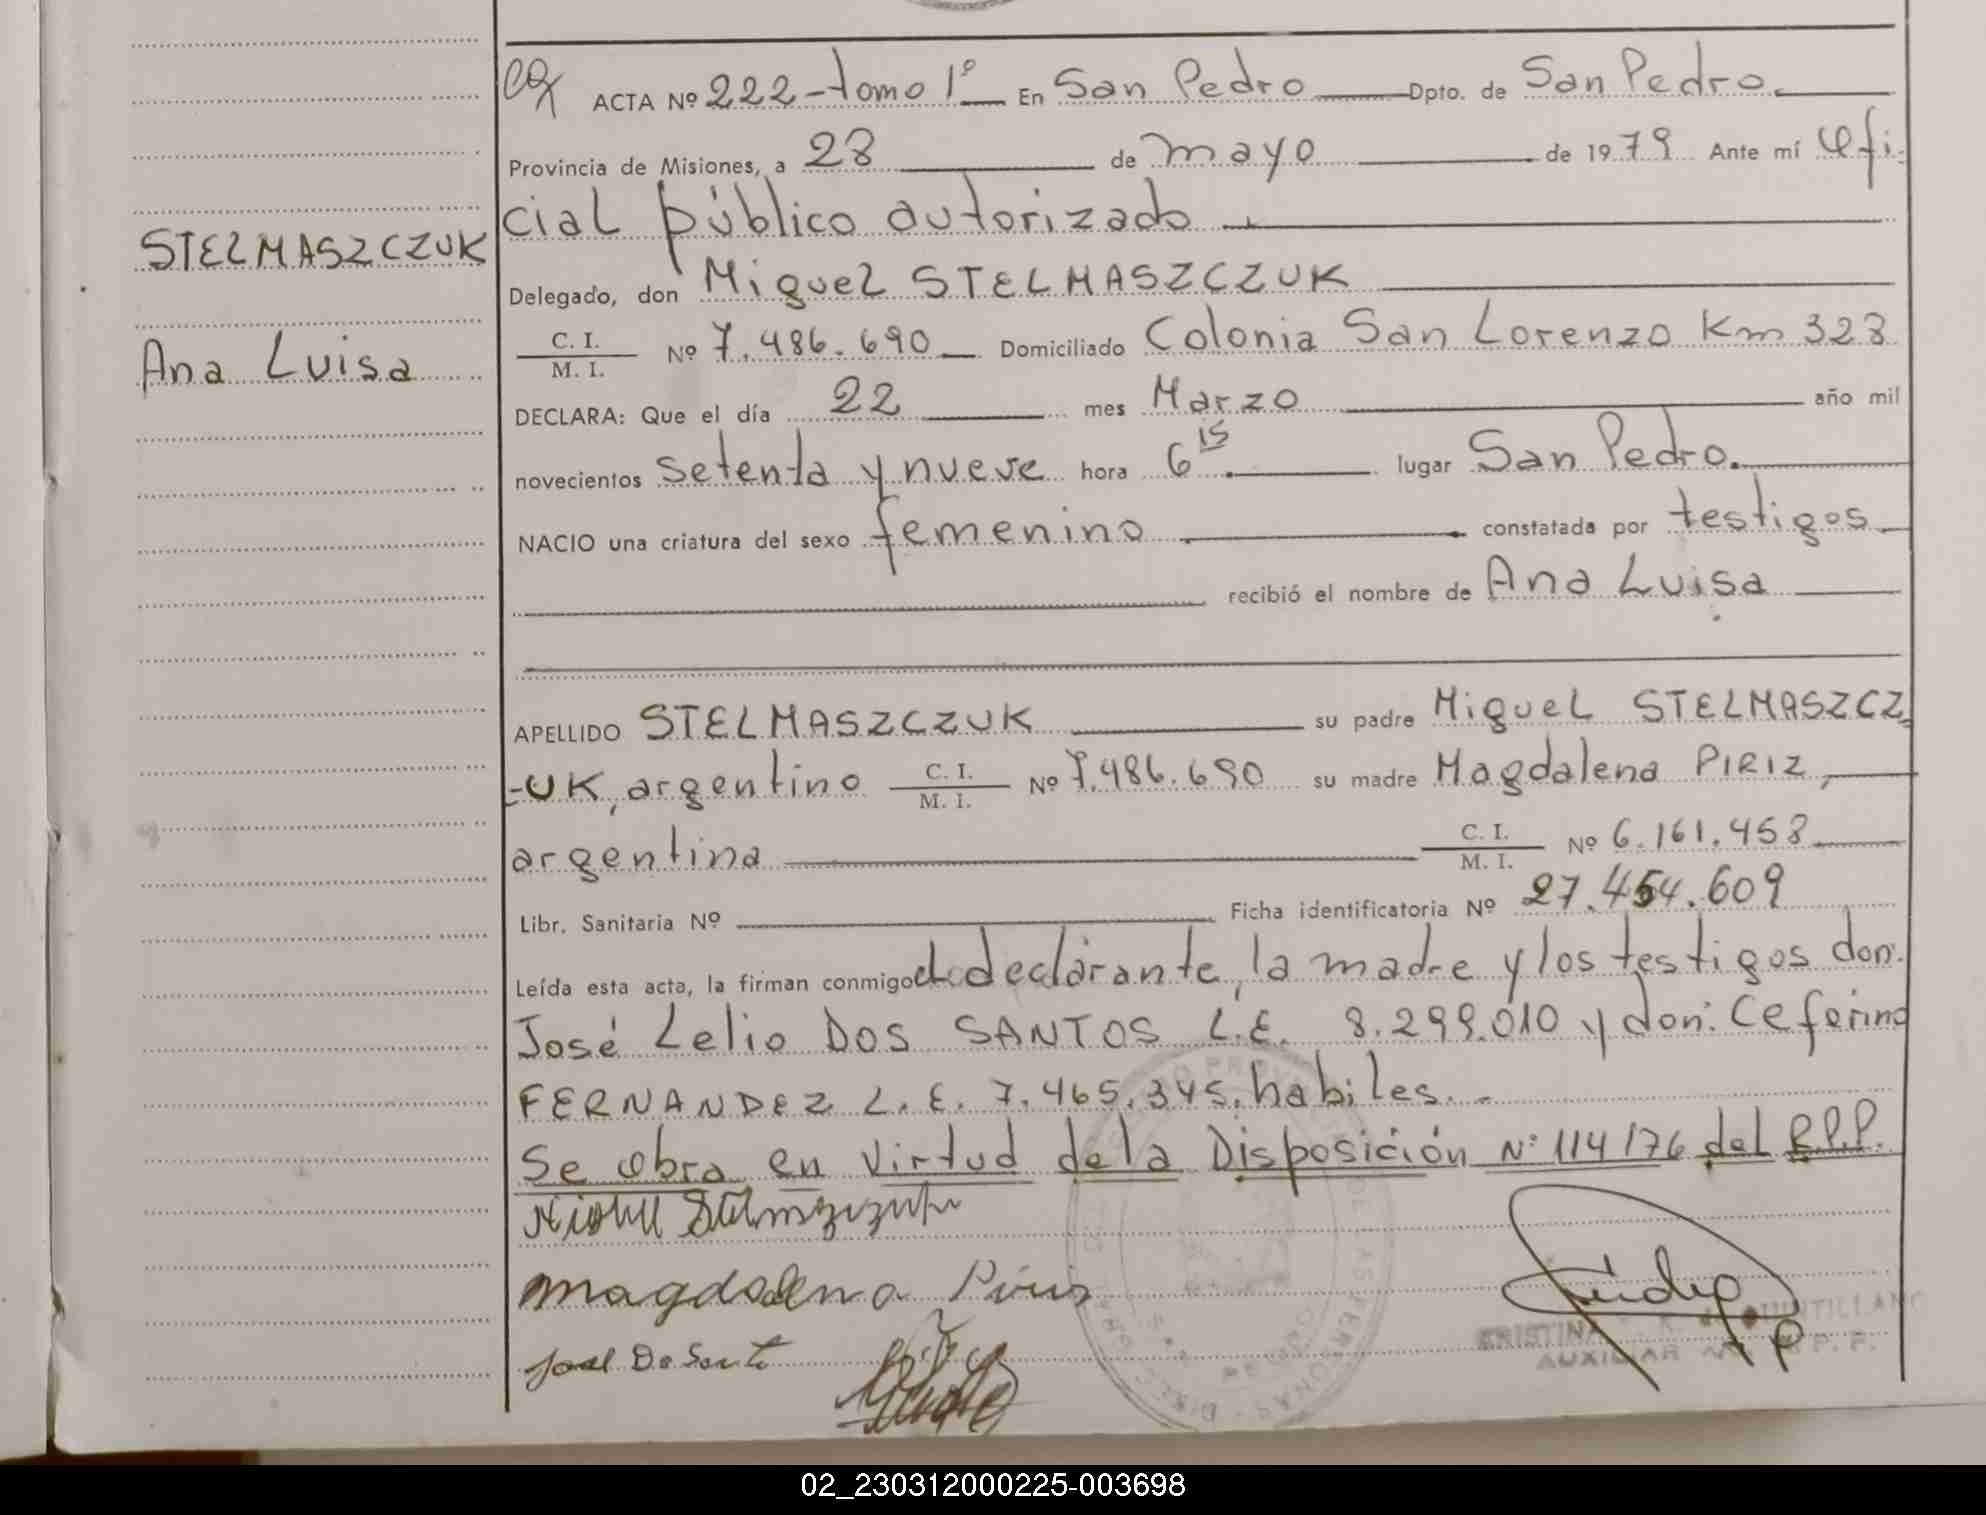 ACTA Nº 222 - tomo 1º En San Pedro Dpto. de San Pedro.
Provincia de Misiones, a 28 de mayo de 1979 Ante mí Ofi-
cial público autorizado
STELMASZCZUK
Delegado, don Miguel STELMASZCZUK
C. I. / M. I. Nº 7.486.690 Domiciliado Colonia San Lorenzo Km 328
Ana Luisa
DECLARA: Que el día 22 mes Marzo año mil
novecientos setenta y nueve hora 6 15 lugar San Pedro.
NACIO una criatura del sexo femenino constatada por testigos
recibió el nombre de Ana Luisa
APELLIDO STELMASZCZUK su padre Miguel STELMASZCZ
-UK, argentino C. I. / M. I. Nº 7.486.690 su madre Magdalena PIRIZ,
argentina C. I. / M. I. Nº 6.161.458
Libr. Sanitaria Nº Ficha identificatoria Nº 27.454.609
Leída esta acta, la firman conmigo el declarante, la madre y los testigos don:
José Lelio DOS SANTOS L.E. 8.299.010 y don: Ceferino
FERNANDEZ L.E. 7.465.345, habiles. -
Se obra en virtud de la Disposición Nº 114/76 del R.P.P.
Magdalena Piris
CRISTINA QUINTILLANO
AUXILIAR R. P. P.
02_230312000225-003698